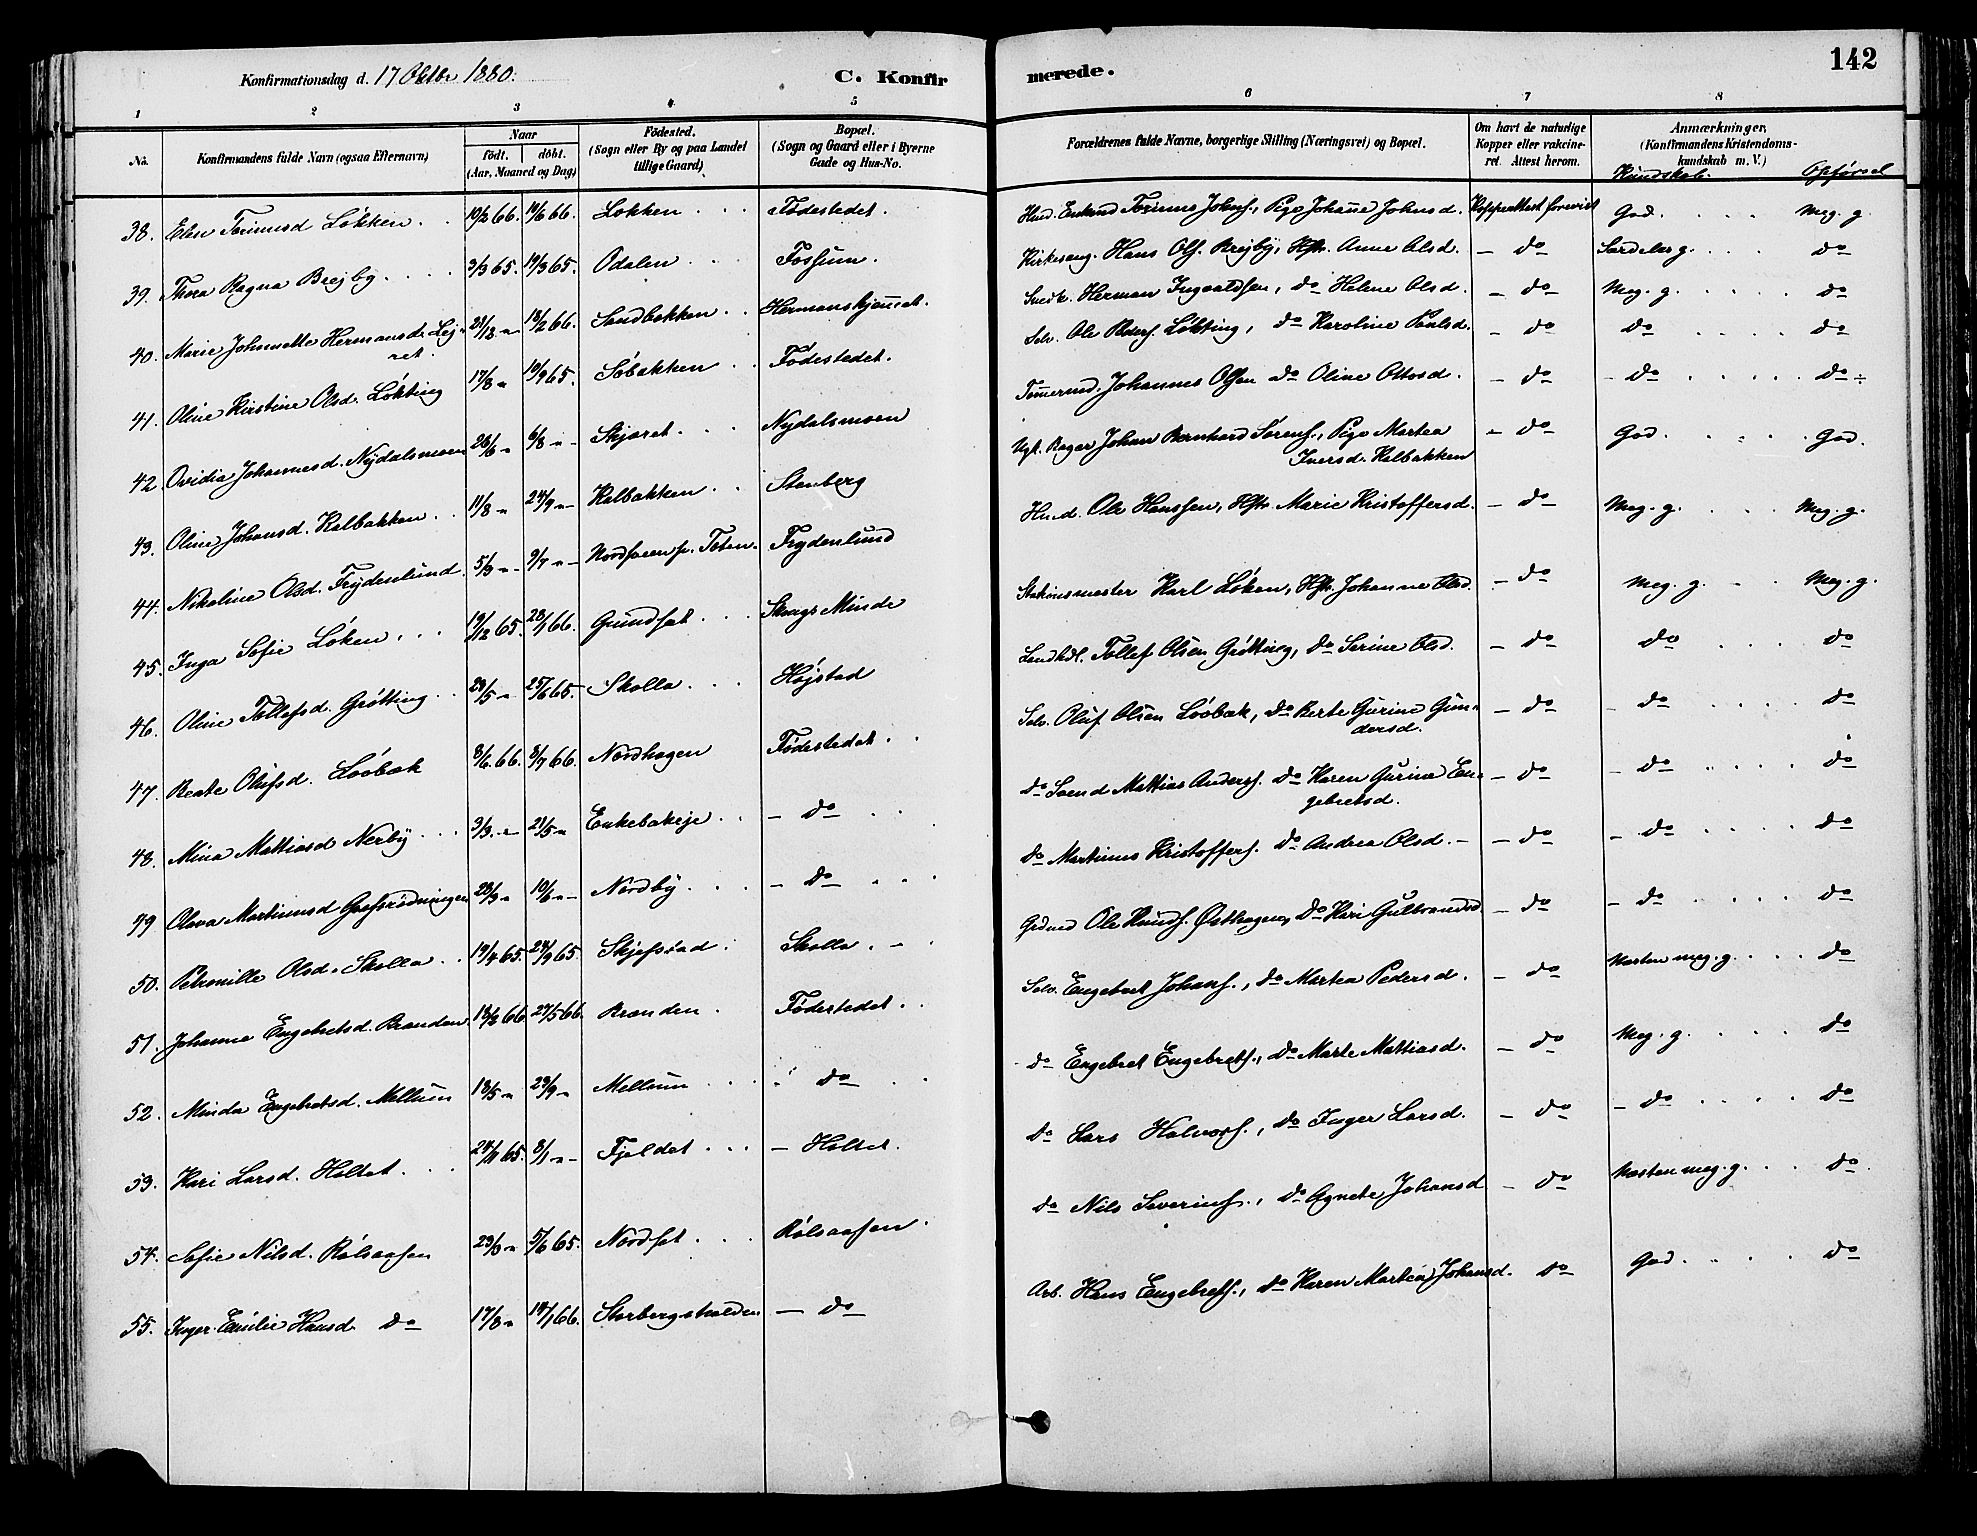 Konfirmationsdag d. 17 Oktbr 1880.
C. Konfirmerede.
142
1 2 3 4 5 6 7 8
No. Konfirmandens fulde Navn (ogsaa Efternavn) Naar født. døbt. (Aar, Maaned og Dag) Fødested. (Sogn eller By og paa Landet tillige Gaard) Bopæl. (Sogn og Gaard eller i Byerne Gade og Hus-No. Forældrenes fulde Navne, borgerlige Stilling (Næringsvei) og Bopæl. Om havt de naturlige Kopper eller vakcineret. Attest herom. Anmærkninger. (Konfirmandens Kristendomskundskab m. V.) Kundskab. Opførsel
38. Elen Torinusd Løkken. 19/2 66. 14/6 66. Løkken Fødestedet. Husd. Enkemd Torinus Johns., Pige Johanne Johnsd. Koppeattest forevist God. Meg. g.
39. Thora Ragna Brejby. 3/3 65. 19/3 65. Odalen Fossum. Kirkesang. Hans Ols. Brejby, Hstr. Anne Olsd. – do Særdeles g. do
40. Marie Johannette Hermansd. Lejret. 28/12 " 18/2 66. Sandbakken Hermanskjønnet. Snedk. Herman Ingvaldsen, do Helene Olsd. – do Meg. g. do
41. Oline Kirstine Olsd. Løkting 17/8 " 10/9 65. Søbakken Fødestedet. Selv. Ole Peders. Løkting, do Karoline Paulsd. – do do do
42. Ovidia Johannesd. Nydalsmoen 26/6 " 6/8 " Skjæret Nydalsmoen Tømermd. Johannes Olsen do Oline Ottosd. – do – do do
43. Oline Johansd. Kalbakken 11/8 " 24/9 " Kalbakken Stenberg Ugt. Bager Johan Bernhard Sørens., Pige Martea Iversd. Kalbakken – do God. God.
44. Nikoline Olsd. Frydenlund. 5/3 " 9/7 " Nordsveen p. Toten Frydenlund Husd. Ole Hanssen, Hstr. Marie Kristoffersd. – do Meg. g. Meg. g.
45. Inga Sofie Løken 19/12 65. 28/1 66. Grundset Skougs Minde Stationsmester Karl Løken, Hstr. Johanne Olsd. – do Meg. g. Meg. g.
46. Oline Tollefsd. Grøtting 29/5 " 25/6 65. Skolla Højstad Landhdl. Tollef Olsen Grøtting, do Serine Olsd. – do do do
47. Beate Olufsd. Løvbæk 8/6 66. 8/7 66. Nordhagen Fødestedet Selv. Oluf Olsen Løvbæk, do Berte Gurine Gundersd. – do – do do
48. Mina Mattiasd Nerby 3/3 " 21/5 " Enkebakeje – do do Svend Mattias Anders. do Karen Gurine Engebretsd. – do – do do
49 Olava Martinusd Gaasrødningen 23/3 " 10/6 " Nordby – do do Martinus Kristoffers. do Andrea Olsd. – do – do do
50. Petronille Olsd. Skolla 19/4 65. 24/9 65. Skjefstad Skolla Gdmd Ole Knuds. Østhagen, do Kari Gulbrandsd – do – do do
51. Johanne Engebretsd. Branden 18/2 66. 27/5 66. Brænden Fødestedet Selv. Engebret Johans., do Martea Pedersd. – do Næsten meg. g. do
52. Minda Engebretsd. Mellum 18/5 " 23/9 " Mellum do do Engebret Engebrets., do Marte Mattiasd. – do Meg. g. do
53. Kari Larsd. Holtet 24/11 65. 8/1 " Fjeldet – Holtet. do Lars Halvors., do Inger Larsd. – do – do do
54. Sofie Nilsd. Rølsaasen 23/3 " 5/6 65. Nordset Rølsaasen. do Nils Severins., do Agnete Johansd – do Næsten meg. g. do
55. Inger Emilie Hansd do 17/8 " 14/1 66. Storbergshalden – do Arb. Hans Engebrets., do Karen Martea Johansd. do God. do